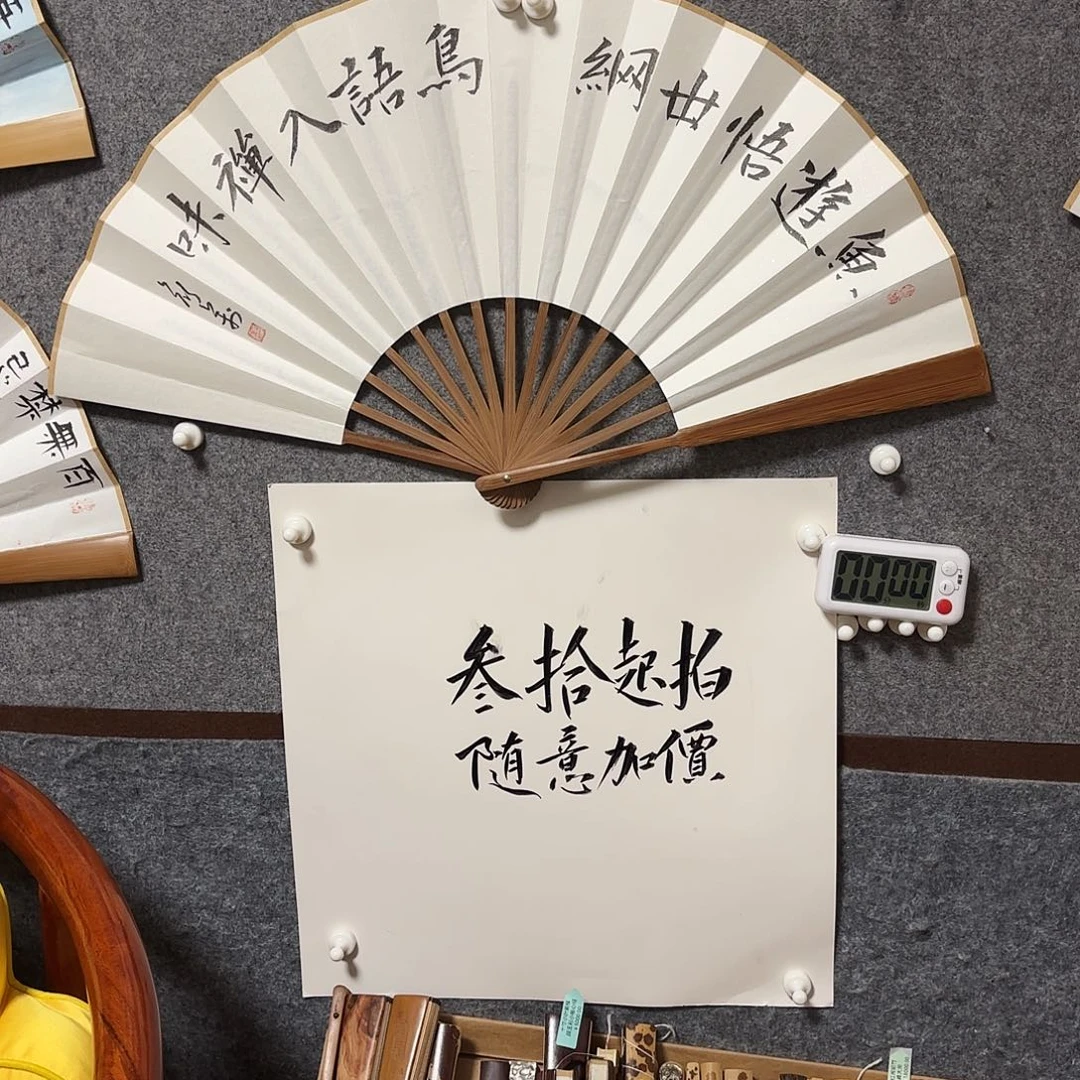 魚遊悟世網
鳥語入禪味
叁拾起拍
隨意加價
00 00
己
禁
無